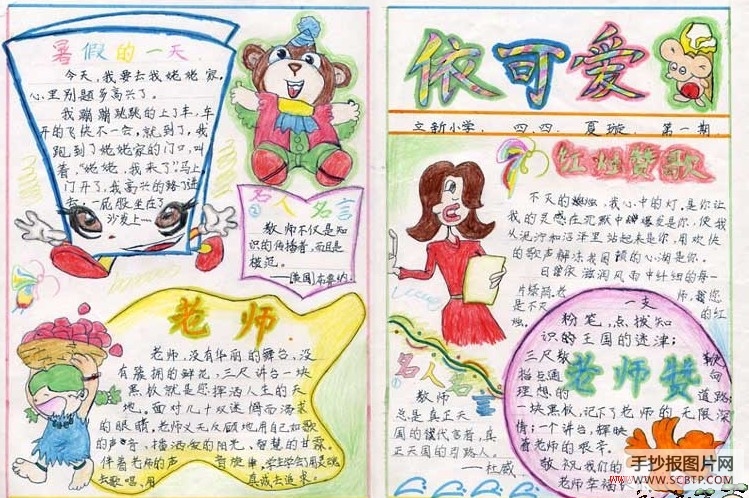 暑假的一天
今天,我要去我姥姥家,
心里别题多高兴了。
我蹦蹦跳跳的上了车,车
开的飞快不一会,就到了,我
跑到了姥姥家的门口,叫
着,“姥姥,我来了”马上,
门开了,我高兴的跨了进
去,一屁股坐在了
沙发上……
名人名言
②
教师不仅是知
识的传播者,而且是
模范。
——[美国]布鲁纳
老师
老师,没有华丽的舞台,没
有簇拥的鲜花,三尺讲台一块
黑板就是您挥洒人生的天
地。面对几十双迷惘而渴求
的眼睛,老师义无反顾地用自己如歌
的声音,播洒爱的阳光、智慧的甘霖,
伴着老师的声
去歌唱、用
真诚去追求。
依可爱
立新小学. 四.四. 夏璇. 第一期
红烛赞歌
不灭的蜡烛,我心中的灯,是你让
我的灵感在沉默中爆发是你,使我
从泥泞和沼泽里站起来是你,用欢快
的歌声解冻我困顿的心湖是你。
日曾依滋润风雨中纤细的每一
片绩简.老
师,我您
是不灭
的红
烛。
一支
粉笔,点拨知
识的王国的迷津;
三尺教
鞭,
指点通
向
理想的
道路;
老师赞
一块黑板,记下了老师的无限深
情;一个讲台,辉映
着老师的艰辛。
敬祝我们的
老师幸福!
名人名言
①
教师
总是真正天
国的代言者,真
正天国的引路人。
——杜威
手抄报图片网
WWW.SCBTP.COM